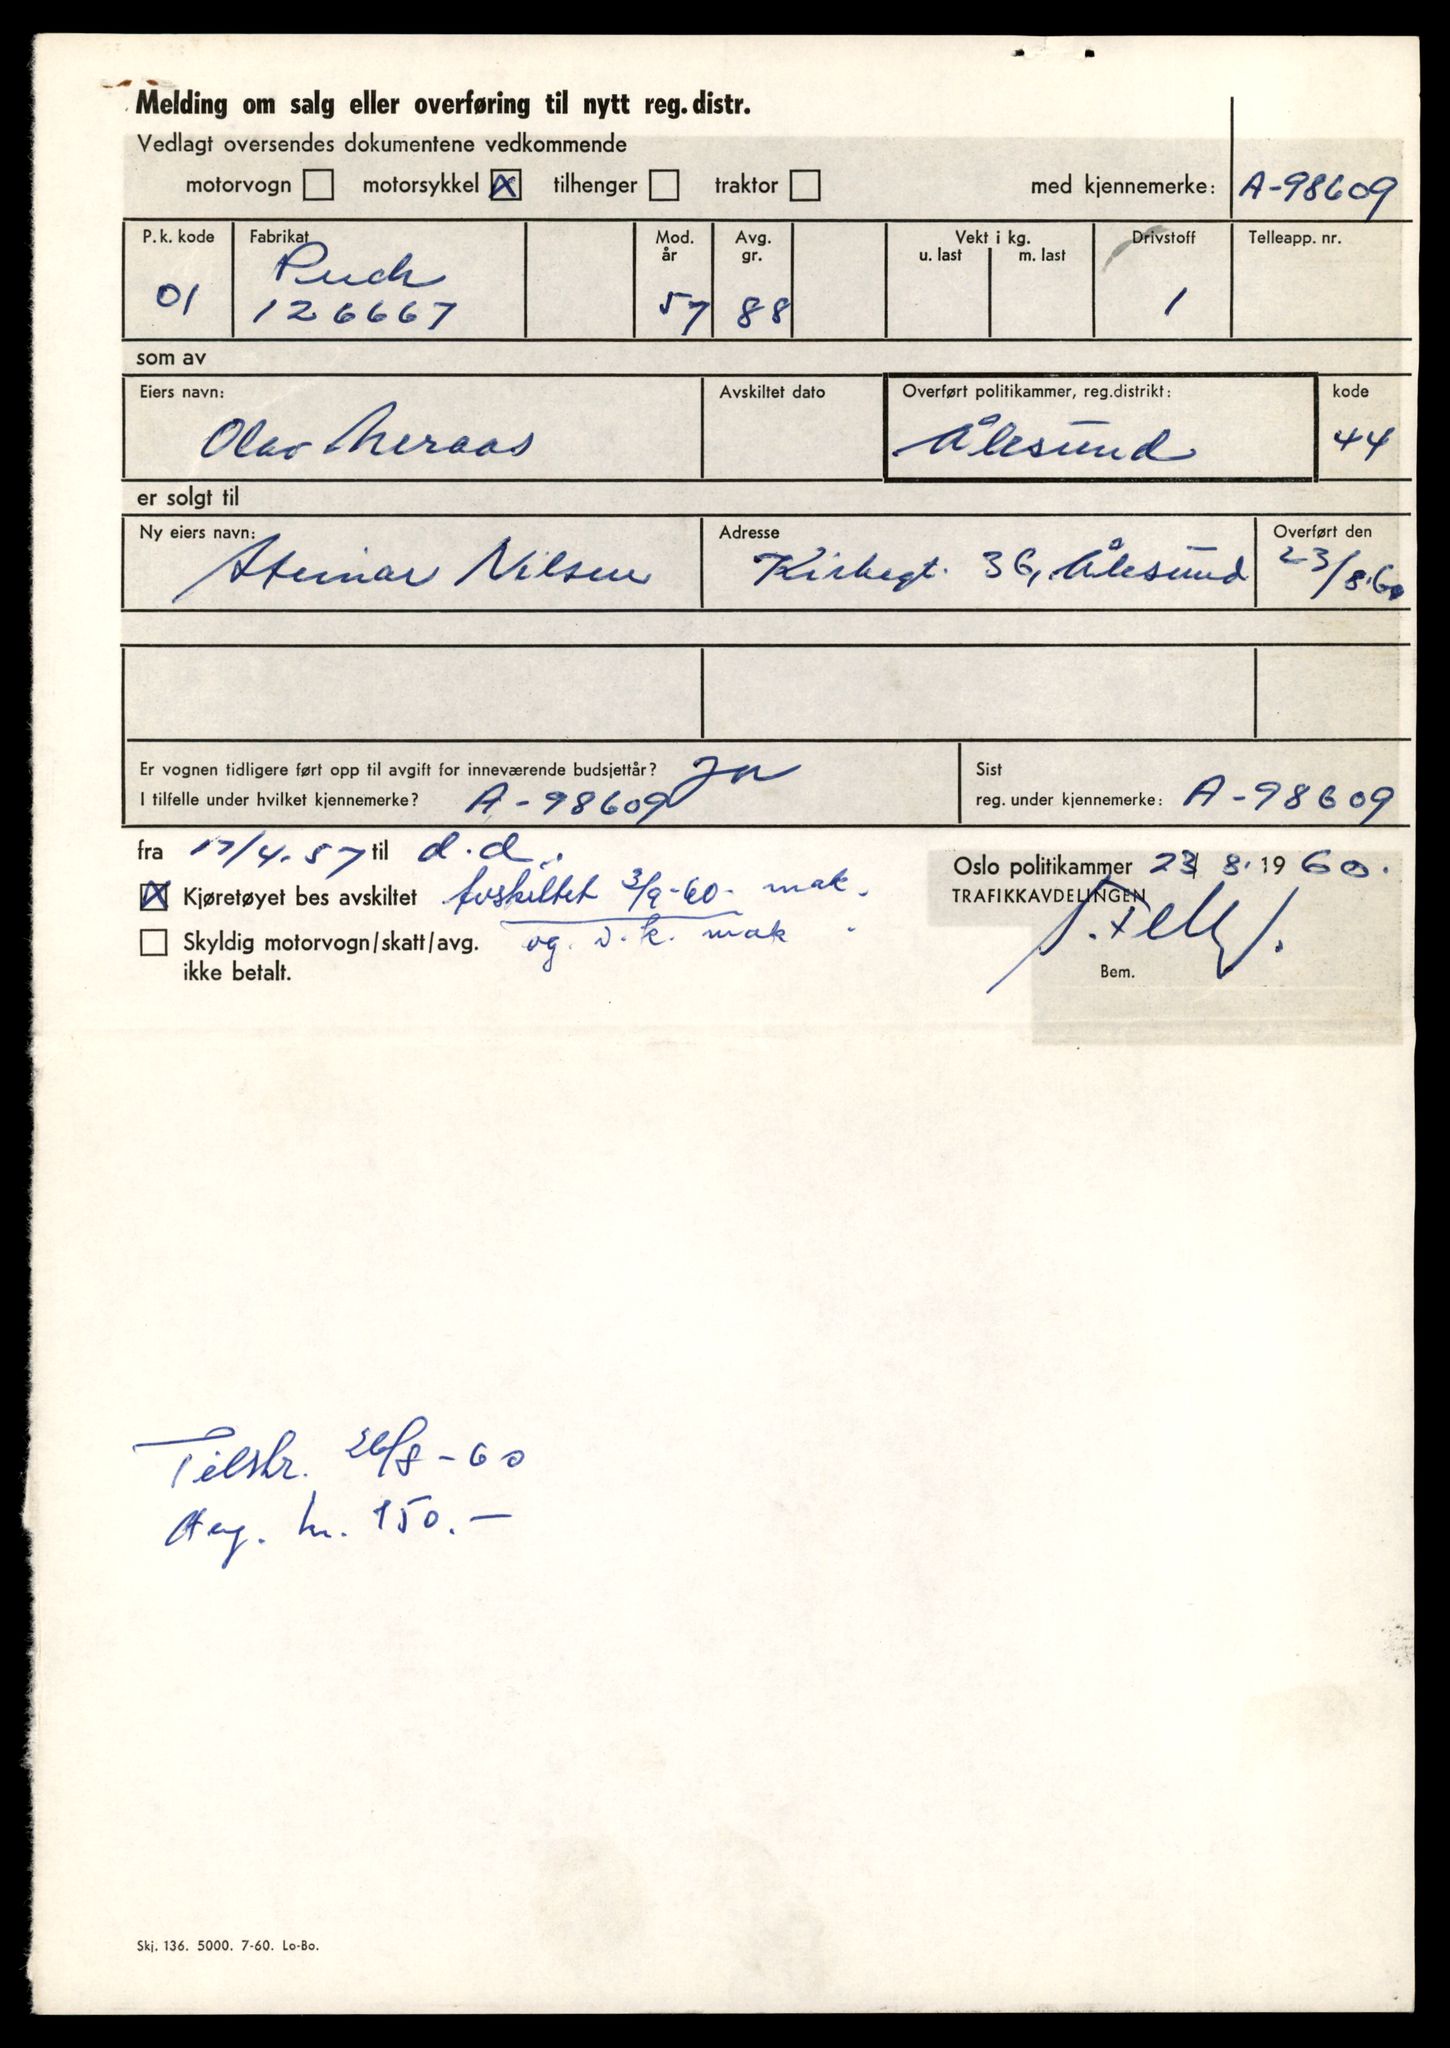 Melding om salg eller overføring til nytt reg.distr.
Vedlagt oversendes dokumentene vedkommende
motorvogn motorsykkel X tilhenger traktor med kjennemerke: A-98609
P.k. kode Fabrikat Mod. år Avg. gr. Vekt i kg. u. last m. last Drivstoff Telleapp. nr.
01 Puch 126667 57 88 1
som av
Eiers navn: Avskiltet dato Overført politikammer, reg.distrikt: kode
Olav Meraas Ålesund 44
er solgt til
Ny eiers navn: Adresse Overført den
Steinar Nilsen Kirkegt. 36, Ålesund 23/8.60
Er vognen tidligere ført opp til avgift for inneværende budsjettår? Ja Sist
I tilfelle under hvilket kjennemerke? A-98609 reg. under kjennemerke: A-98609
fra 17/4-57 til d.d. Oslo politikammer 23/8. 1960.
X Kjøretøyet bes avskiltet Avskiltet 3/9-60- mak. TRAFIKKAVDELINGEN
Skyldig motorvogn/skatt/avg. og v.k. mak.
ikke betalt. Bem.
Tilskr. 26/8-60
Avg. kr. 150.-
Skj. 136. 5000. 7-60. Lo-Bo.